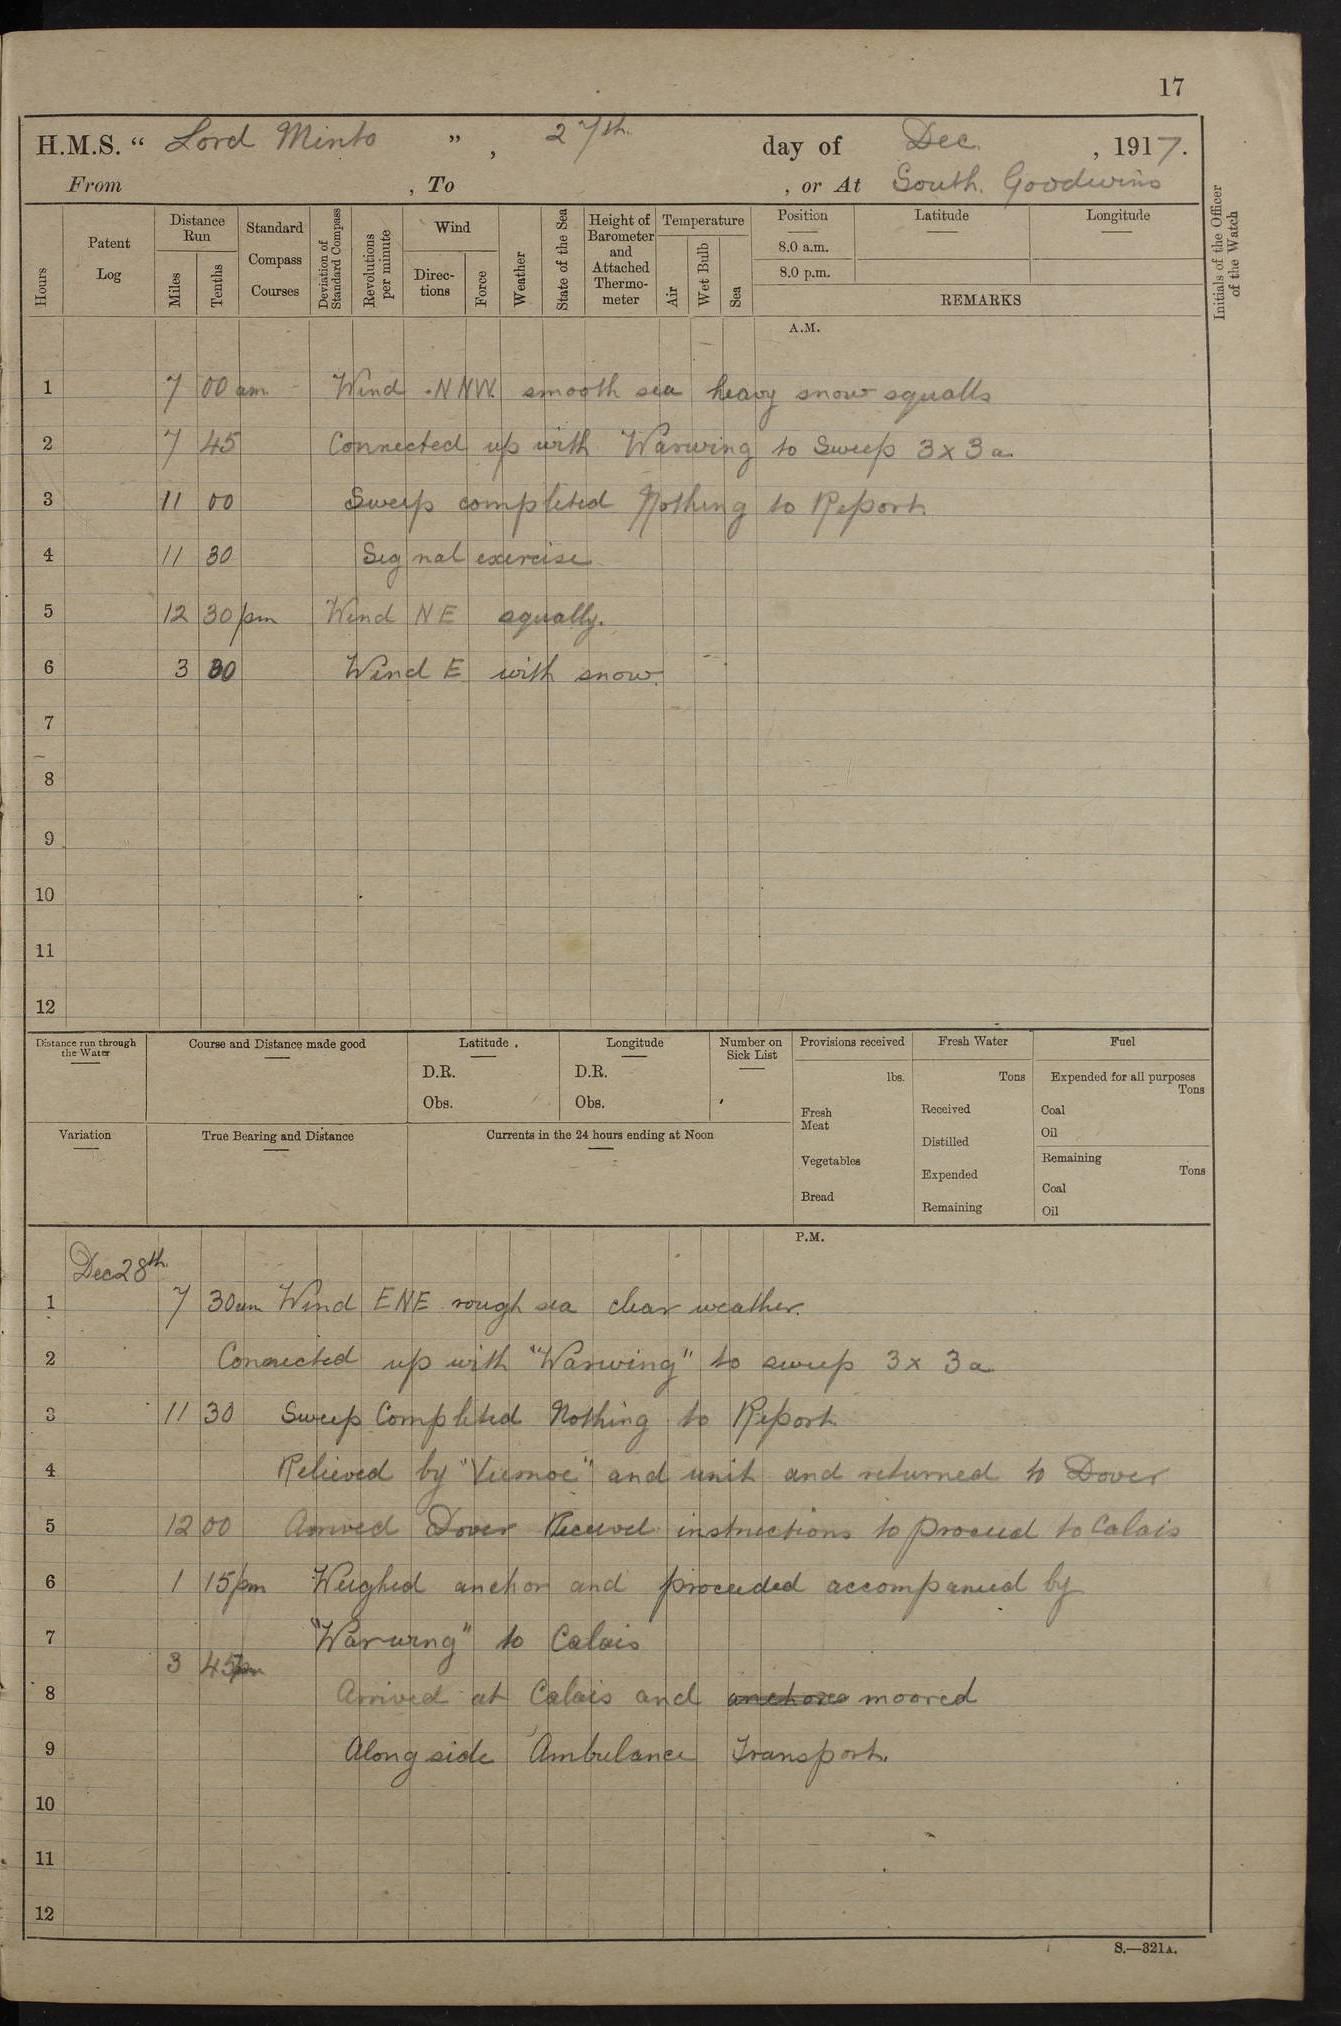 17
H.M.S. “ Lord Minto ” , 27th. day of Dec. , 1917.
From , To , or At South. Goodwins
Hours
Patent
Log
Distance
Run
Miles
Tenths
Standard
Compass
Courses
Deviation of
Standard Compass
Revolutions
per minute
Wind
Direc-
tions
Force
Weather
State of the Sea
Height of
Barometer
and
Attached
Thermo-
meter
Temperature
Air
Wet Bulb
Sea
Position
8.0 a.m.
8.0 p.m.
Latitude
Longitude
REMARKS
Initials of the Officer
of the Watch
A.M.
1 7 00 am Wind NNW. smooth sea heavy snow squalls
2 7 45 Connected up with Warwing to Sweep 3 x 3a
3 11 00 Sweep completed Nothing to Report.
4 11 30 Signal exercise
5 12 30 pm Wind NE squally.
6 3 30 Wind E with snow.
7
8
9
10
11
12
Distance run through
the Water
Course and Distance made good
Latitude
D.R.
Obs.
Longitude
D.R.
Obs.
Number on
Sick List
Provisions received
lbs.
Fresh
Meat
Vegetables
Bread
Fresh Water
Tons
Received
Distilled
Expended
Remaining
Fuel
Expended for all purposes
Tons
Coal
Oil
Remaining
Tons
Coal
Oil
Variation
True Bearing and Distance
Currents in the 24 hours ending at Noon
P.M.
Dec 28th.
1 7 30am Wind ENE rough sea clear weather.
2 Connected up with "Warwing" to sweep 3 x 3a
3 11 30 Sweep Completed Nothing to Report
4 Relieved by and unit and returned to Dover
5 12 00 Arrived Dover Received instructions to proceed to Calais
6 1 15pm Weighed anchor and proceeded accompanied by
7 "Warwing" to Calais
3 45pm
8 Arrived at Calais and moored
9 Along side Ambulance Transport.
10
11
12
S.—321A.